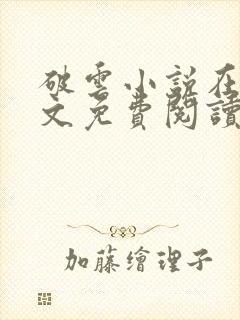 破雲小說在
文免費閱讀
加藤繪理子